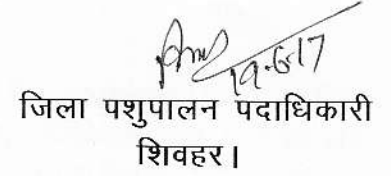 19.6.17
जिला पशुपालन पदाधिकारी
शिवहर।